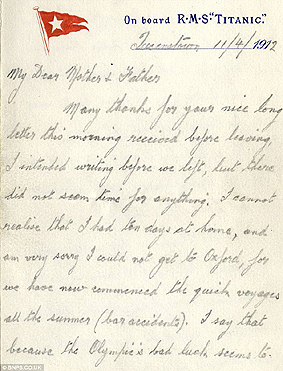 On board R·M·S "TITANIC."
Queenstown 11/4/1912
My Dear Mother & Father
Many thanks for your nice long
letter this morning received before leaving,
I intended writing before we left, but there
did not seem time for anything. I cannot
realise that I had ten days at home, and
am very sorry I could not get to Oxford, for
we have now commenced the quick voyages
all the summer (bar accidents). I say that
because the Olympic's bad luck seems to-
© BNPS.CO.UK